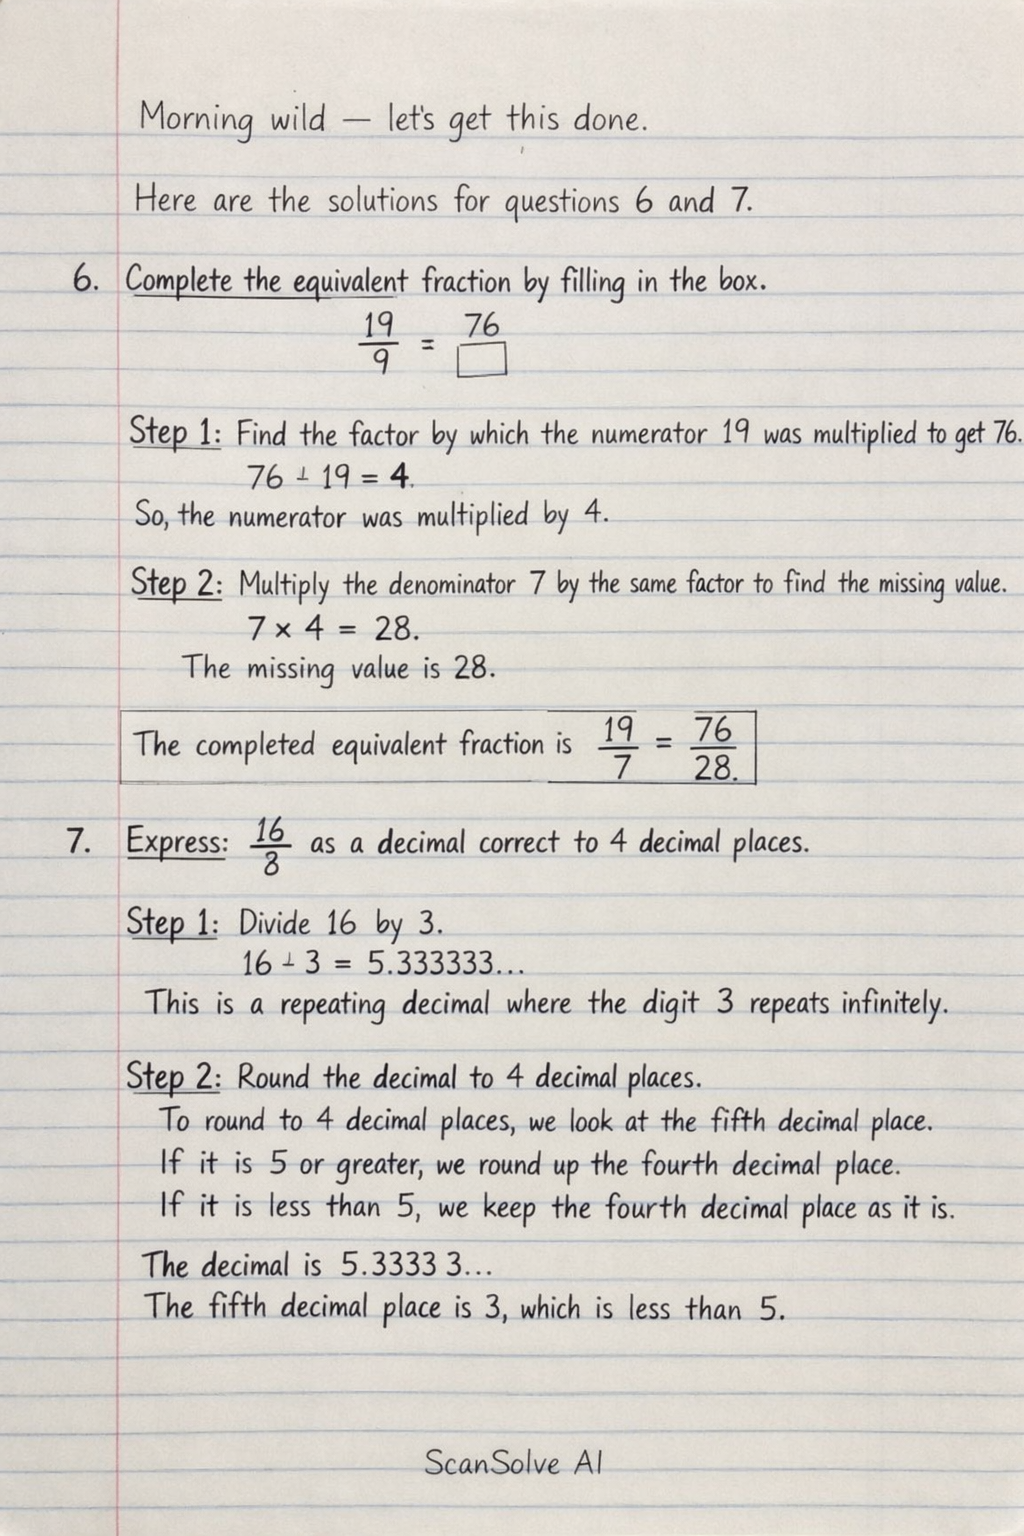 Morning wild — let's get this done.
Here are the solutions for questions 6 and 7.
6. Complete the equivalent fraction by filling in the box.
19/9 = 76/□
Step 1: Find the factor by which the numerator 19 was multiplied to get 76.
76 ÷ 19 = 4.
So, the numerator was multiplied by 4.
Step 2: Multiply the denominator 7 by the same factor to find the missing value.
7 × 4 = 28.
The missing value is 28.
The completed equivalent fraction is 19/7 = 76/28.
7. Express: 16/8 as a decimal correct to 4 decimal places.
Step 1: Divide 16 by 3.
16 ÷ 3 = 5.333333...
This is a repeating decimal where the digit 3 repeats infinitely.
Step 2: Round the decimal to 4 decimal places.
To round to 4 decimal places, we look at the fifth decimal place.
If it is 5 or greater, we round up the fourth decimal place.
If it is less than 5, we keep the fourth decimal place as it is.
The decimal is 5.3333 3...
The fifth decimal place is 3, which is less than 5.
ScanSolve AI